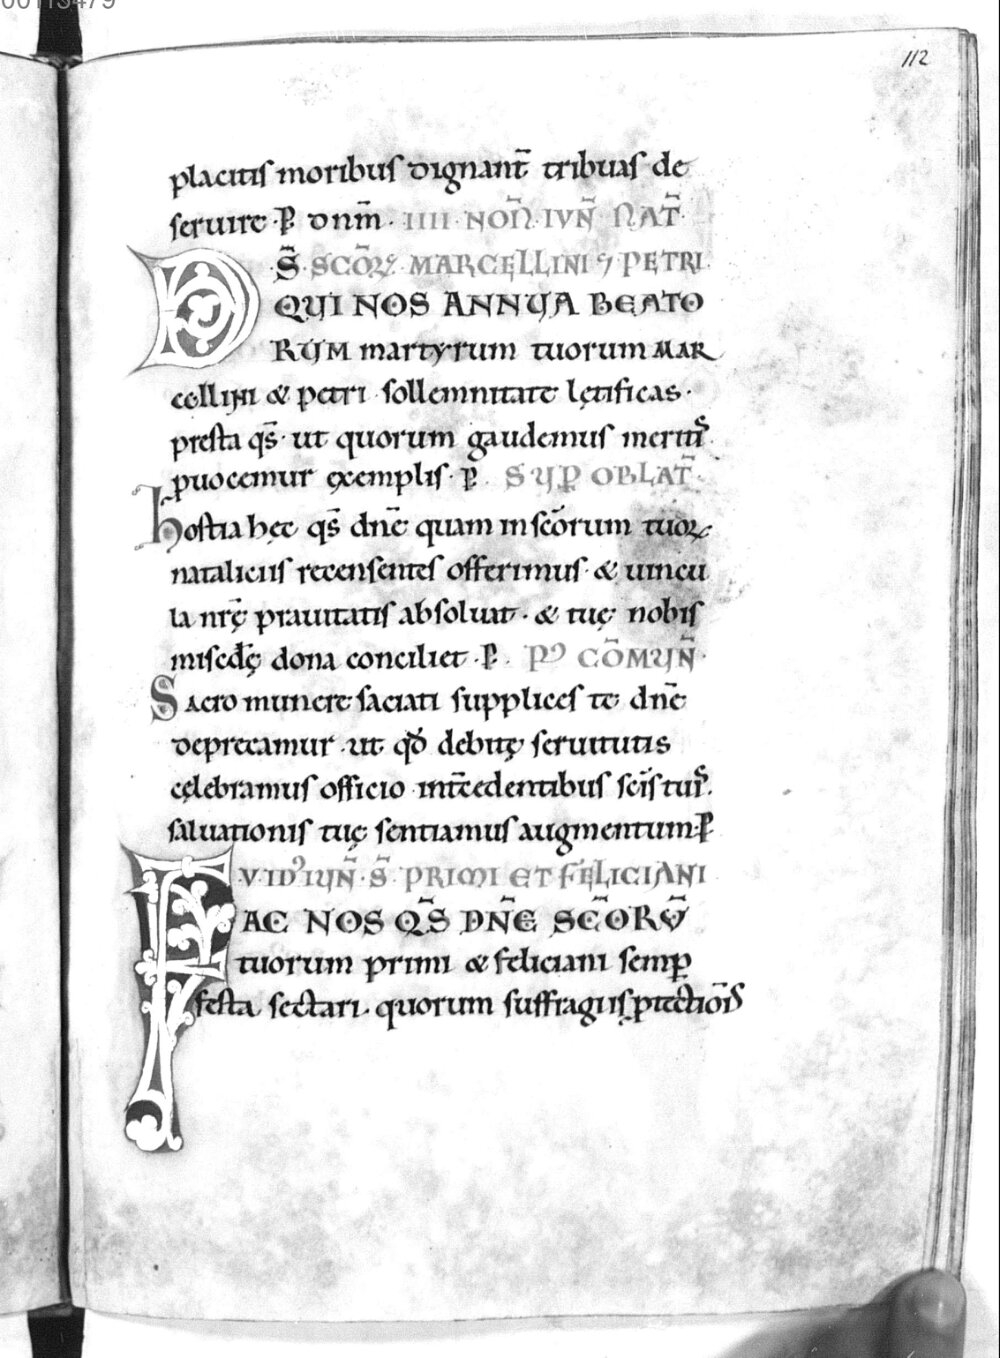 00113479
112
placitis moribus dignant̄ tribuas de
seruire · P̄ dnm̄ · IIII · NON̄ · IVN̄ NAT̄ ·
S̄ · SCŌꝜ · MARCĘLLINI ⁊ PETRI ·
D QUI NOS ANNUA BEATO
RUM martyrum tuorum MAR
cellini & petri sollemnitate lętificas ·
presta qs̄ · ut quorum gaudemus meritis
ꝓuocemur exemplis · P̄ . SUP OBLAT̄ ·
hostia hęc qs̄ dnē quam in scōrum tuoꝝ
nataliciis recensentes offerimus · & uincu
la nrę̄ prauitatis absoluat · & tuę nobis
misc̄dę dona conciliet · P̄ . PꝰCŌMUN̄ ·
Sacro munere saciati supplices te dnē
deprecamur · ut qđ debitę seruitutis
cęlebramus officio · int̄cedentibus sc̄is tuis ·
saluationis tuę sentiamus augmentum · P̄
V · IDꝰ IUN̄ · S̄ · PRIMI ET FELICIANI
FAC NOS QS̄ DNĒ SCŌRV̄
tuorum primi & feliciani semꝑ
festa sectari · quorum suffragiis ꝓtectiōis